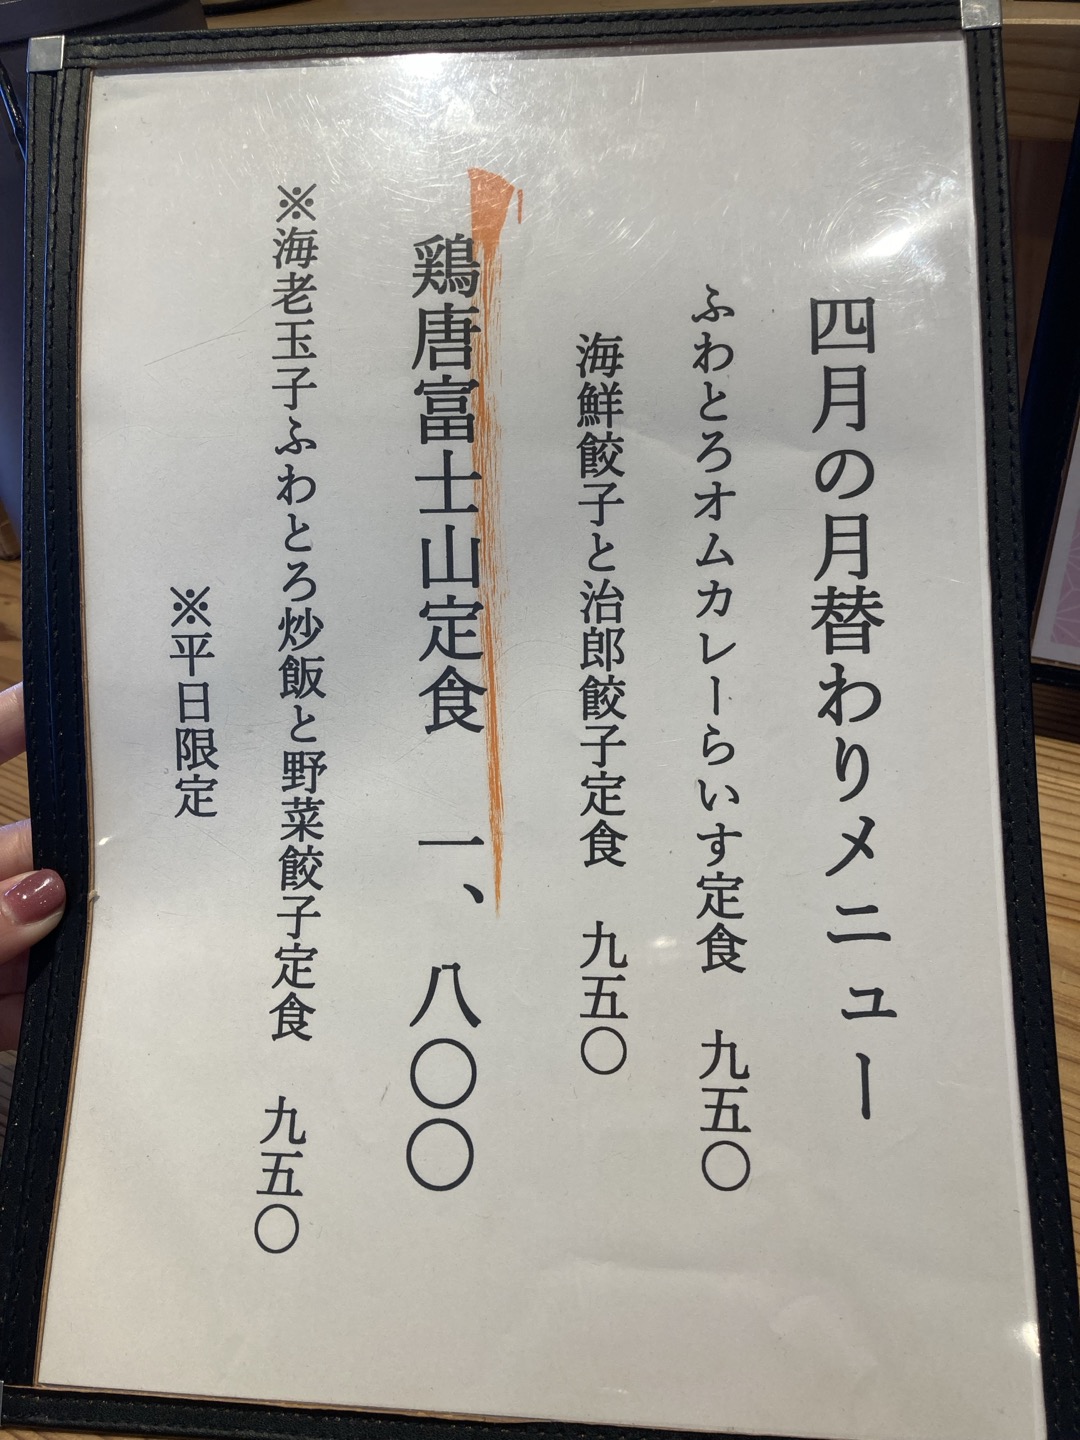 四月の月替わりメニュー
ふわとろオムカレーらいす定食　九五〇
海鮮餃子と治郎餃子定食　九五〇
鶏唐富士山定食　一、八〇〇
※海老玉子ふわとろ炒飯と野菜餃子定食　九五〇
※平日限定